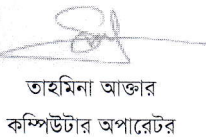 তাহমিনা আক্তার
কম্পিউটার অপারেটর